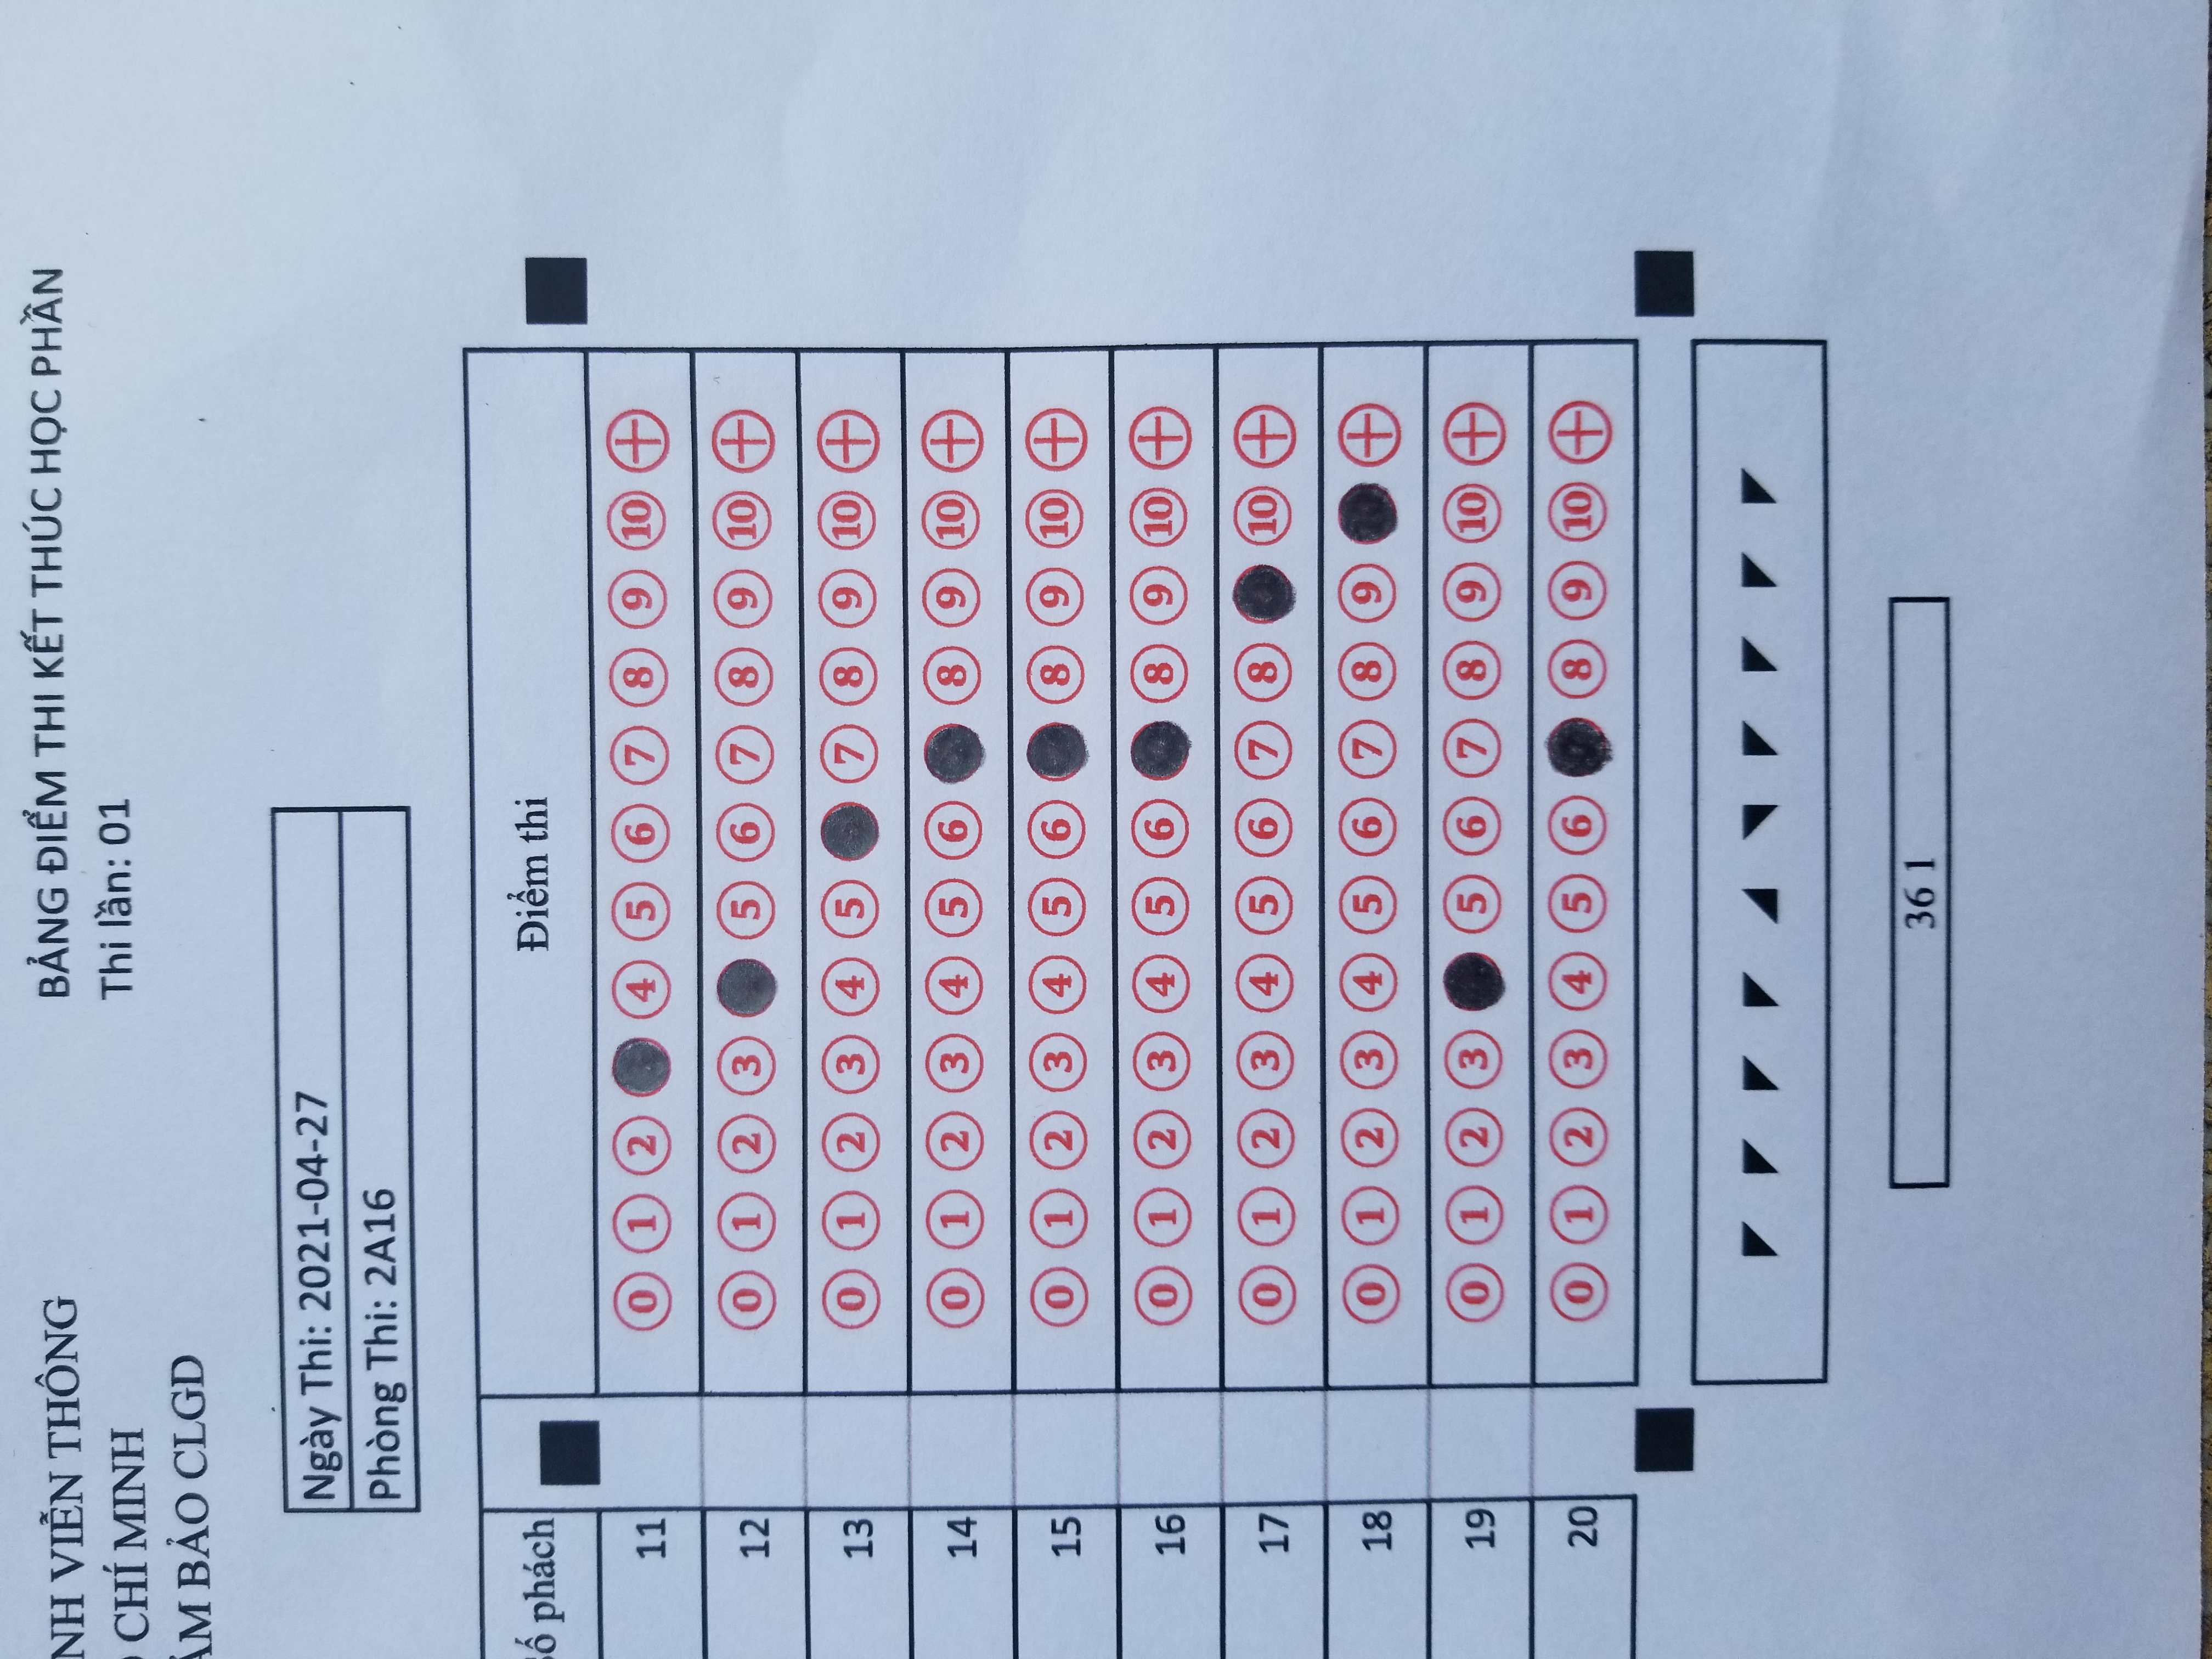 NH VIỄN THÔNG
CHÍ MINH
ẢM BẢO CLGD
BẢNG ĐIỂM THI KẾT THÚC HỌC PHẦN
Thi lần: 01
Ngày Thi: 2021-04-27
Phòng Thi: 2A16
Số phách Điểm thi
11 0 1 2 4 5 6 7 8 9 10 +
12 0 1 2 3 5 6 7 8 9 10 +
13 0 1 2 3 4 5 7 8 9 10 +
14 0 1 2 3 4 5 6 8 9 10 +
15 0 1 2 3 4 5 6 8 9 10 +
16 0 1 2 3 4 5 6 8 9 10 +
17 0 1 2 3 4 5 6 7 8 10 +
18 0 1 2 3 4 5 6 7 8 9 +
19 0 1 2 3 5 6 7 8 9 10 +
20 0 1 2 3 4 5 6 8 9 10 +
36 1